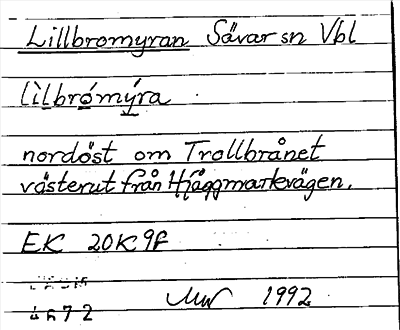 Lillbromyran Sävar sn Vbl
lìlbrómýra
nordöst om Trollbrånet
västerut från Hjåggmarkvägen.
EK 20K9f
1992
4672